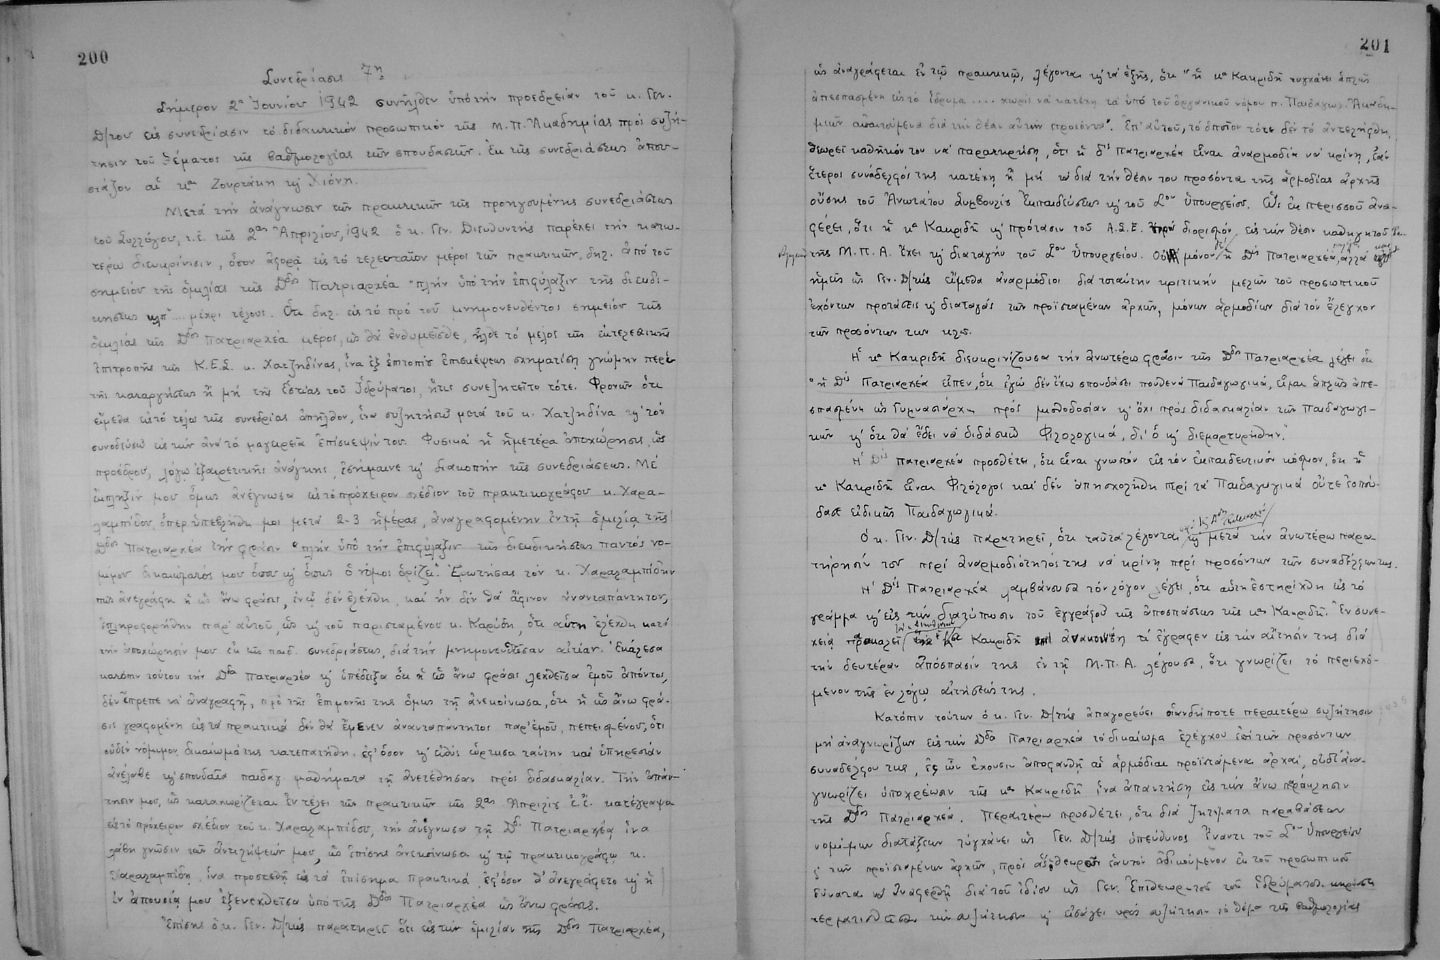 200
Συνεδρίασις 7η
Σήμερον 2α Ἰουνίου 1942 συνῆλθεν ὑπὸ τὴν προεδρείαν τοῦ κ. Γεν.
Δ/του εἰς συνεδρίασιν τὸ διδακτικὸν προσωπικὸν τῆς Μ.Π. Ἀκαδημίας πρὸς συζή-
τησιν τοῦ θέματος τῆς βαθμολογίας τῶν σπουδαστῶν. Ἐκ τῆς συνεδριάσεως ἀπου-
σιάζον αἱ και Ζουρτάκη κ' Χιόνη.
Μετὰ τὴν ἀνάγνωσιν τῶν πρακτικῶν τῆς προηγουμένης συνεδριάσεως
τοῦ Συλλόγου, τ.ἔ. τῆς 2ας Ἀπριλίου, 1942 ὁ κ. Γεν. Διευθυντὴς παρέχει τὴν κατω-
τέρω διευκρίνισιν, ὅσον ἀφορᾷ εἰς τὸ τελευταῖον μέρος τῶν πρακτικῶν, δηλ. ἀπὸ τοῦ
σημείου τῆς ὁμιλίας τῆς Δδος Πατριαρχέα "πλὴν ὑπὸ τὴν ἐπιφύλαξιν τῆς διεκδι-
κήσεως κλπ".... μέχρι τέλους. Ὅτι δηλ. εἰς τὸ πρὸ τοῦ μνημονευθέντος σημείου τῆς
ὁμιλίας τῆς Δδος Πατριαρχέα μέρος, ὡς θὰ ἐνθυμεῖσθε, ἦλθε τὸ μέλος τῆς ἐκτελεστικῆς
ἐπιτροπῆς τῆς Κ.Ε.Σ. κ. Χατζηδίνας, ἵνα ἐξ ἐπιτοπίου ἐπισκέψεως σχηματίσῃ γνώμην περὶ
τῆς καταργήσεως ἢ μὴ τῆς ἑστίας τοῦ Ἱδρύματος, ἥτις συνεζητεῖτο τότε. Φρονῶν ὅτι
εἴμεθα εἰς τὸ τέλος τῆς συνεδρίας ἀπῆλθον, ἵνα συζητήσω μετὰ τοῦ κ. Χατζηδίνα κ' τὸν
συνοδεύσω εἰς τὴν ἀνὰ τὰ μαγειρεῖα ἐπίσκεψίν του. Φυσικὰ ἡ ἡμετέρα ἀποχώρησις, ὡς
προέδρου, λόγῳ ἐξαιρετικῆς ἀνάγκης, ἐσήμαινε κ' διακοπὴν τῆς συνεδριάσεως. Μὲ
ἔκπληξίν μου ὅμως ἀνέγνωσα εἰς τὸ πρόχειρον σχέδιον τοῦ πρακτικογράφου κ. Χαρα-
λαμπίδου, ὅπερ ὑπεβλήθη μοι μετὰ 2-3 ἡμέρας, ἀναγραφομένην ἐν τῇ ὁμιλίᾳ τῆς
Δδος Πατριαρχέα τὴν φράσιν "πλὴν ὑπὸ τὴν ἐπιφύλαξιν τῆς διεκδικήσεως παντὸς νο-
μίμου δικαιώματός μου ὅπου κ' ὅπως ὁ νόμος ὁρίζει". Ἐρωτήσας τὸν κ. Χαραλαμπίδην
πῶς ἀνεγράφη ἡ ὡς ἄνω φράσις, ἐνῷ δὲν ἐλέχθη, καὶ ἣν δὲν θὰ ἄφινον ἀναπάντητον,
ἐπληροφορήθην παρ' αὐτοῦ, ὡς κ' τοῦ παρισταμένου κ. Καρύδη, ὅτι αὕτη ἐλέχθη κατὰ
τὴν ἀποχώρησίν μου ἐκ τῆς παιδ. συνεδριάσεως, διὰ τὴν μνημονευθεῖσαν αἰτίαν. Ἐκάλεσα
κατόπιν τούτου τὴν Δδα Πατριαρχέα κ' ὑπέδειξα ὅτι ἡ ὡς ἄνω φράσις λεχθεῖσα ἐμοῦ ἀπόντος,
δὲν ἔπρεπε ν' ἀναγραφῇ, πρὸ τῆς ἐπιμονῆς της ὅμως τῇ ἀνεκοίνωσα, ὅτι ἡ ὡς ἄνω φρά-
σις γραφομένη εἰς τὰ πρακτικὰ δὲν θὰ ἔμενεν ἀναπάντητος παρ' ἐμοῦ, πεπεισμένου, ὅτι
οὐδὲν νόμιμον δικαίωμά της κατεπατήθη, ἐφ' ὅσον κ' εὐθὺς ὥρκισα ταύτην καὶ ὑπηρεσίαν
ἀνέλαβε κ' σπουδαῖα παιδαγ. μαθήματα τῇ ἀνετέθησαν πρὸς διδασκαλίαν. Τὴν ἀπάν-
τησίν μου, ὡς καταχωρίζεται ἐν τέλει τῶν πρακτικῶν τῆς 2ας Ἀπριλίου ἐ.ἔ. κατέγραψα
εἰς τὸ πρόχειρον σχέδιον τοῦ κ. Χαραλαμπίδου, τὴν ἀνέγνωσα τῇ Δδι Πατριαρχέα ἵνα
λάβῃ γνῶσιν τῶν ἀντιλήψεών μου, ὡς ἐπίσης ἀνεκοίνωσα κ' τῷ πρακτικογράφῳ κ.
Χαραλαμπίδῃ, ἵνα προστεθῇ εἰς τὰ ἐπίσημα πρακτικά, ἐφ' ὅσον θ' ἀνεγράφετο κ' ἡ
ἐν ἀπουσίᾳ μου ἐξενεχθεῖσα ὑπὸ τῆς Δδος Πατριαρχέα ὡς ἄνω φράσις.
Ἐπίσης ὁ κ. Γεν. Δ/τὴς παρατηρεῖ ὅτι εἰς τὴν ὁμιλίαν τῆς Δδος Πατριαρχέα,
201
ὡς ἀναγράφεται ἐν τῷ πρακτικῷ, λέγονται κ' τὰ ἑξῆς, ὅτι "ἡ κα Κακριδῆ τυγχάνει ἁπλῶς
ἀπεσπασμένη εἰς τὸ ἵδρυμα .... χωρὶς νὰ κατέχῃ τὰ ὑπὸ τοῦ ὀργανικοῦ νόμου π. Παιδαγωγ. Ἀκαδη-
μιῶν ἀπαιτούμενα διὰ τὴν θέσιν αὐτὴν προσόντα". Ἐπ' αὐτοῦ, τὸ ὁποῖον τότε δὲν τὸ ἀντελήφθη,
θεωρεῖ καθῆκον του νὰ παρατηρήσῃ, ὅτι ἡ δὶς Πατριαρχέα εἶναι ἀναρμοδία νὰ κρίνῃ, ἐὰν
ἕτερος συνάδελφός της κατέχῃ ἢ μὴ τὰ διὰ τὴν θέσιν του προσόντα τῆς ἁρμοδίας ἀρχῆς
οὔσης τοῦ Ἀνωτάτου Συμβουλίου Ἐκπαιδεύσεως κ' τοῦ Σου Ὑπουργείου. Ὡς ἐκ περισσοῦ ἀνα-
φέρει, ὅτι ἡ κα Κακριδῆ κ' πρότασιν τοῦ Α.Σ.Ε. διορισμόν εἰς τὴν θέσιν καθηγητοῦ
τῆς Μ.Π.Α. ἔχει κ' διαταγὴν τοῦ Σου Ὑπουργείου. Οὐ μόνον ἡ Δὶς Πατριαρχέα, ἀλλὰ
ἡμεῖς ὡς Γεν. Δ/τὴς εἴμεθα ἀναρμόδιοι διὰ τοιαύτην κριτικὴν μελῶν τοῦ προσωπικοῦ
ἐχόντων προτάσεις κ' διαταγὰς τῶν προϊσταμένων ἀρχῶν, μόνων ἁρμοδίων διὰ τὸν ἔλεγχον
τῶν προσόντων των κλπ.
Ἡ κα Κακριδῆ διευκρινίζουσα τὴν ἀνωτέρω φράσιν τῆς Δδος Πατριαρχέα λέγει ὅτι
"ἡ Δὶς Πατριαρχέα εἶπεν, ὅτι ἐγὼ δὲν ἔχω σπουδάσει πουθενὰ Παιδαγωγικά, εἶμαι ἁπλῶς ἀπε-
σπασμένη ὡς Γυμνασιάρχης πρὸς μισθοδοσίαν κ' ὄχι πρὸς διδασκαλίαν τῶν Παιδαγωγι-
κῶν κ' ὅτι θὰ ἔδει νὰ διδάσκω Φιλολογικά, δι' ὃ κ' διεμαρτυρήθην."
Ἡ Δὶς Πατριαρχέα προσθέτει, ὅτι εἶναι γνωστὸν εἰς τὸν ἐκπαιδευτικὸν κόσμον, ὅτι ἡ
κα Κακριδῆ εἶναι Φιλόλογος καὶ δὲν ἀπησχολήθη περὶ τὰ Παιδαγωγικὰ οὔτε ἐσπού-
δασε εἰδικῶς Παιδαγωγικά.
Ὁ κ. Γεν. Δ/τὴς παρατηρεῖ, ὅτι ταῦτα λέγονται κ' μετὰ τὴν ἀνωτέρω παρα-
τήρησίν του περὶ ἀναρμοδιότητός της νὰ κρίνῃ περὶ προσόντων τῶν συναδέλφων της.
Ἡ Δὶς Πατριαρχέα λαμβάνουσα τὸν λόγον λέγει, ὅτι αὕτη ἐστηρίχθη εἰς τὸ
γράμμα κ' εἰς τὴν διατύπωσιν τοῦ ἐγγράφου τῆς ἀποσπάσεως τῆς κας Κακριδῆ. Ἐν συνε-
χείᾳ προκαλεῖ Κακριδῆ ἀνακοινώσῃ τί ἔγραφεν εἰς τὴν αἴτησίν της διὰ
τὴν δευτέραν ἀπόσπασίν της ἐν τῇ Μ.Π.Α. λέγουσα, ὅτι γνωρίζει τὸ περιεχό-
μενον τῆς ἐν λόγῳ αἰτήσεώς της.
Κατόπιν τούτων ὁ κ. Γεν. Δ/τὴς ἀπαγορεύει οἱανδήποτε περαιτέρω συζήτησιν
μὴ ἀναγνωρίζων εἰς τὴν Δδα Πατριαρχέα τὸ δικαίωμα ἐλέγχου ἐπὶ τῶν προσόντων
συναδέλφου της, ἐφ' ὧν ἔχουσιν ἀποφανθῇ αἱ ἁρμόδιαι προϊστάμεναι ἀρχαί, οὐδ' ἀνα-
γνωρίζει ὑποχρέωσιν τῆς κας Κακριδῆ ἵνα ἀπαντήσῃ εἰς τὴν ἄνω πρόκλησιν
τῆς Δδος Πατριαρχέα. Περαιτέρω προσθέτει, ὅτι διὰ ζητήματα παραβάσεων
νομίμων διατάξεων τυγχάνει ὡς Γεν. Δ/τὴς ὑπεύθυνος ἔναντι τοῦ Σου Ὑπουργείου
κ' τῶν προϊσταμένων ἀρχῶν, πρὸς ἃς θεωρῶν ἑαυτὸν ἀδικούμενον ἐκ τοῦ προσωπικοῦ
δύναται ν' ἀναφερθῇ διὰ τοῦ ἰδίου ὡς Γεν. Ἐπιθεωρητοῦ τοῦ Ἱδρύματος. κηρύσσει
τερματισθεῖσαν τὴν συζήτησιν κ' εἰσάγει πρὸς συζήτησιν τὸ θέμα τῆς βαθμολογίας